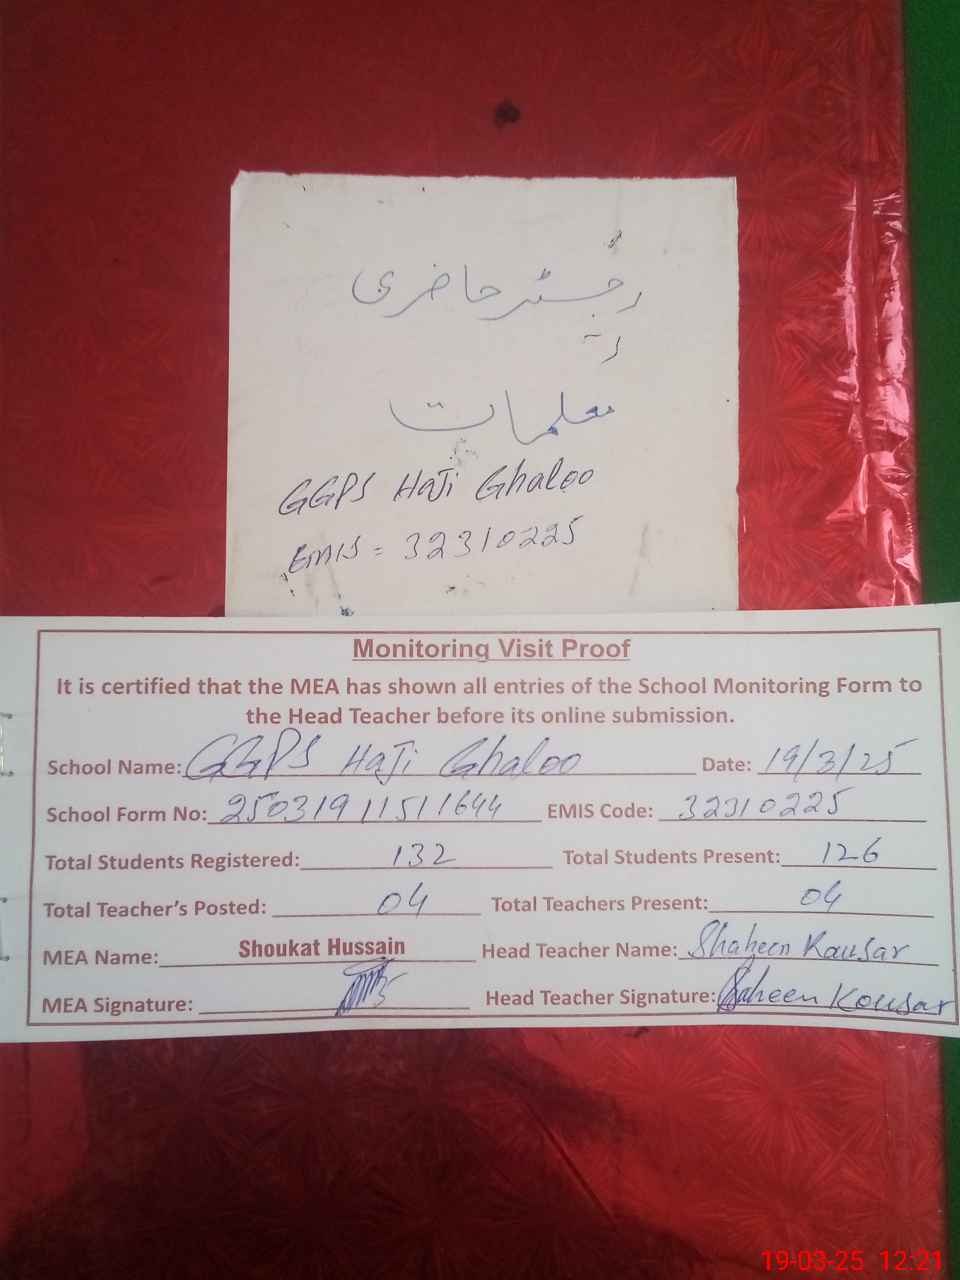 رجسٹر حاضری
معلمات
GGPS Haji Ghaloo
EMIS = 32310225
Monitoring Visit Proof
It is certified that the MEA has shown all entries of the School Monitoring Form to
the Head Teacher before its online submission.
School Name: GGPS Haji Ghaloo Date: 19/3/25
School Form No: 25031911511644 EMIS Code: 32310225
Total Students Registered: 132 Total Students Present: 126
Total Teacher's Posted: 04 Total Teachers Present: 04
MEA Name: Shoukat Hussain Head Teacher Name: Shaheen Kausar
MEA Signature: Head Teacher Signature: Shaheen Kousar
19-03-25 12:21